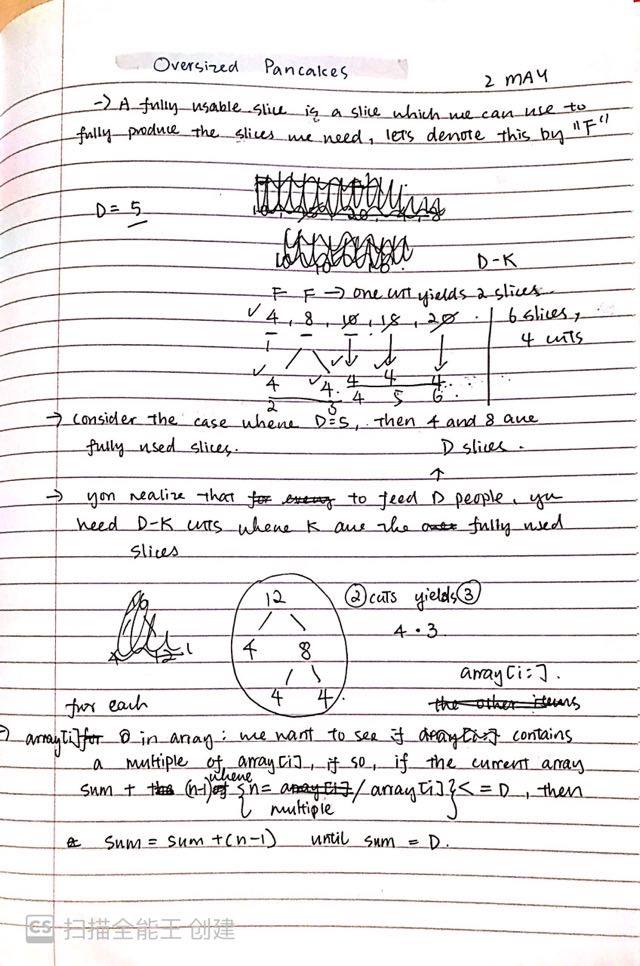 Oversized Pancakes
2 MAY
→ A fully usable slice is a slice which we can use to
fully produce the slices we need, lets denote this by "F"
D = 5
D-K
F F → one cut yields 2 slices.
✓ 4, 8, 10, 18, 20 . 6 slices,
1 4 cuts
✓ 4 ✓ 4. ✓ 4 ✓ 4 4
2 3 4 5 6
→ consider the case where D=5, then 4 and 8 are
fully used slices. D slices.
↑
→ you realize that for every to feed D people, you
need D-K cuts where K are the fully used
slices
12 ② cuts yields ③
4 8 4 · 3
4 4
array[i:].
for each the other items
→ array[i] for 0 in array: we want to see if array[i:] contains
a multiple of array[i], if so, if the current array
sum + (n-1) of where {n = array[i] / array[i]} <= D, then
multiple
sum = sum + (n-1) until sum = D.
CS 扫描全能王 创建